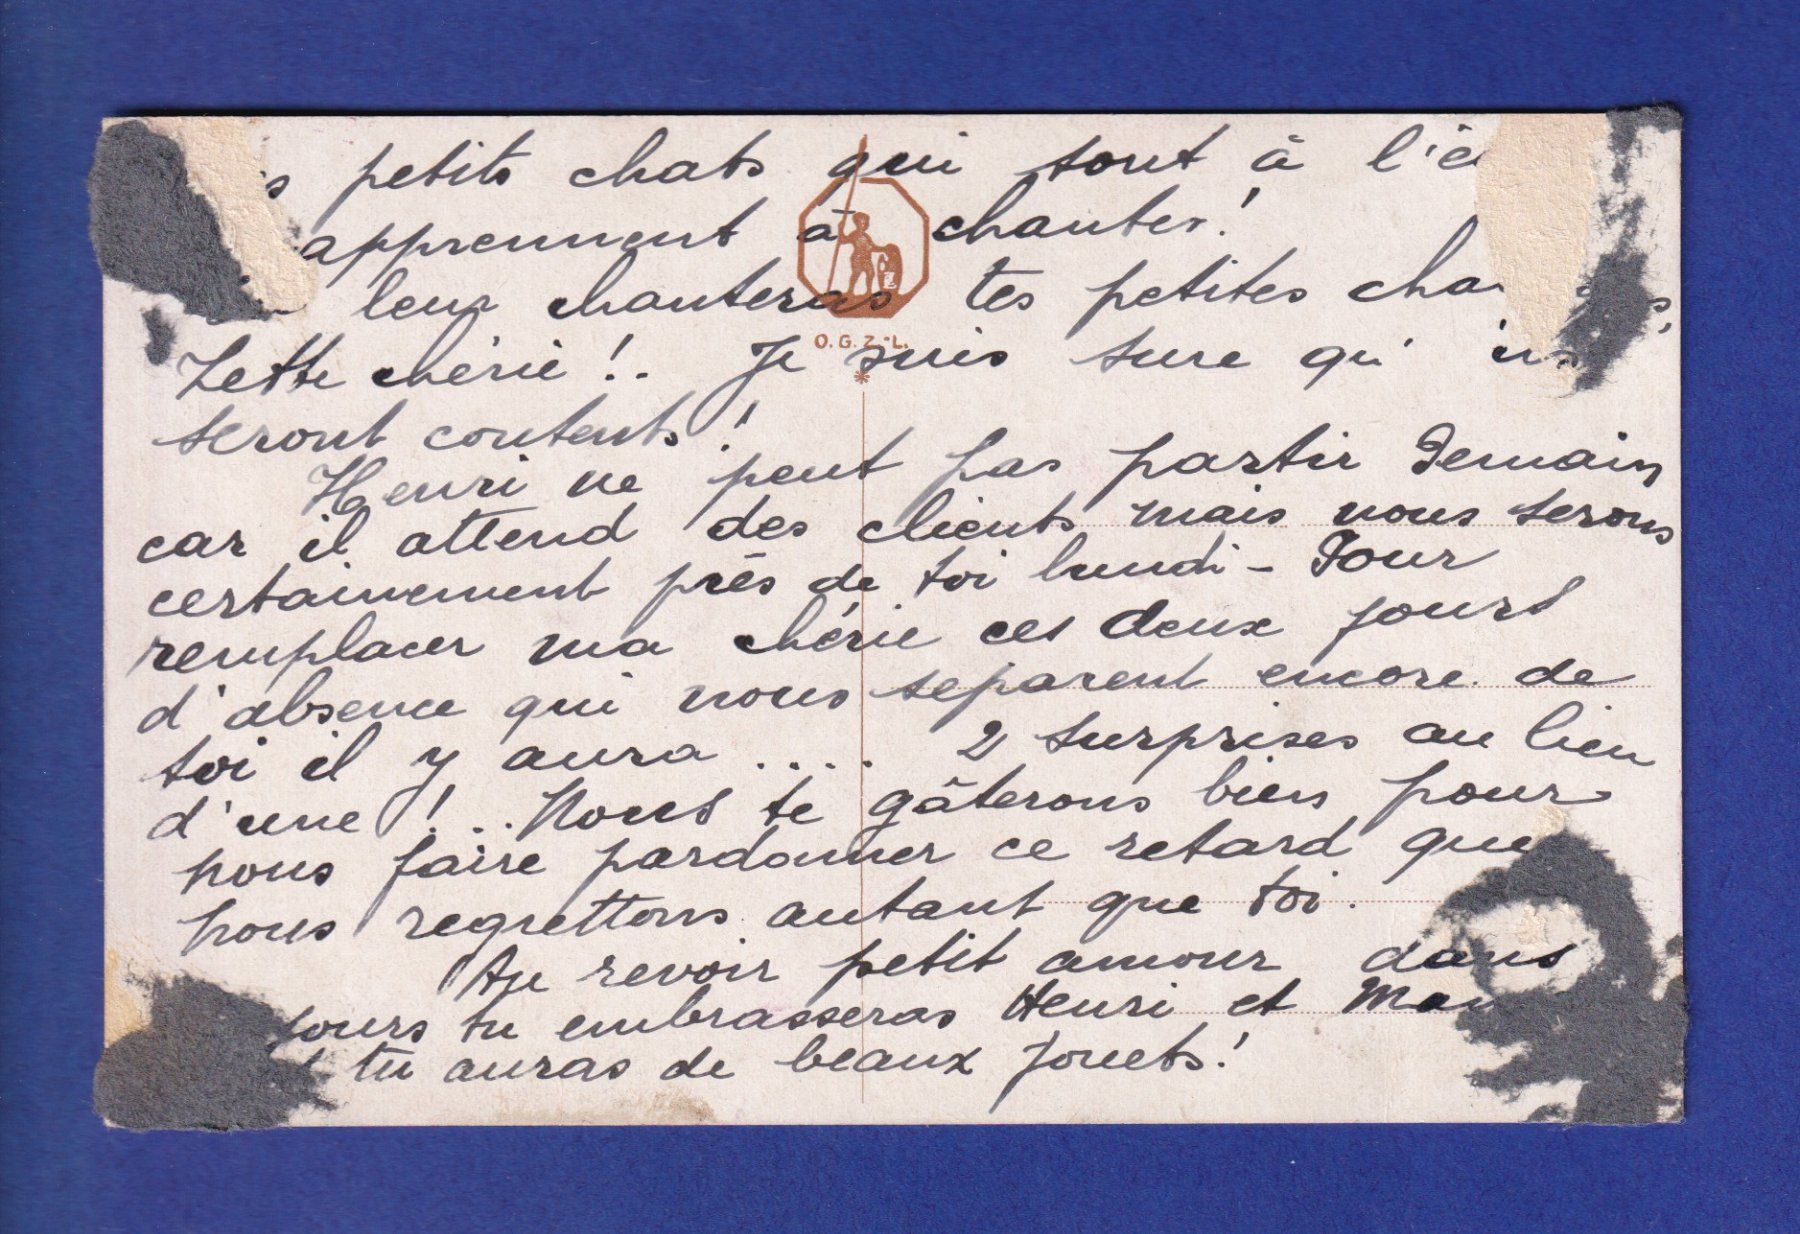 petits chats qui sont à l'é
apprennent à chanter!
leur chanteras tes petites cha
Zette chérie!.. Je suis sure qu'
seront contents!
Henri ne peut pas partir demain
car il attend des clients mais nous serons
certainement près de toi lundi - Pour
remplacer ma chérie ces deux jours
d'absence qui nous separent encore de
toi il y aura .... 2 surprises au lieu
d'une!... Nous te gâterons bien pour
nous faire pardonner ce retard que
nous regrettons autant que toi.
Au revoir petit amour dans
jours tu embrasseras Henri et Mam
tu auras de beaux jouets!
O.G.Z.-L.